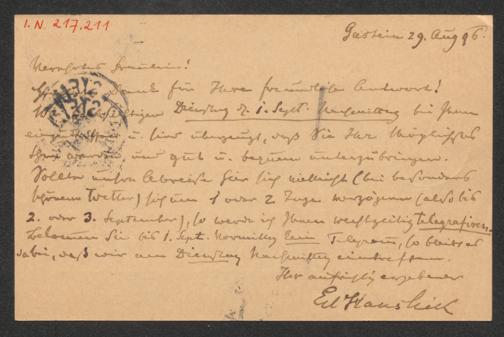 I.N. 217.211
Gastein 29. Aug 96.
Verehrtes Fräulein!
Dank für Ihre freundliche Antwort!
Dienstag d. 1. Sept. Nachmittag bei Ihnen
u. bin überzeugt, daß Sie Ihr Möglichstes
und gut u. bequem unterzubringen.
Sollte unsre Abreise hier sich vielleicht (bei besonders
schönem Wetter) sich um 1 oder 2 Tage verzögern (also bis
2. oder 3. September), so werde ich Ihnen rechtzeitig telegrafiren.
Bekommen Sie bis 1. Sept. Vormittag kein Telegram, so bleibt es
dabei, daß wir am Dienstag Nachmittag eintreffen.
Ihr aufrichtig ergebener
Ed Hanslick